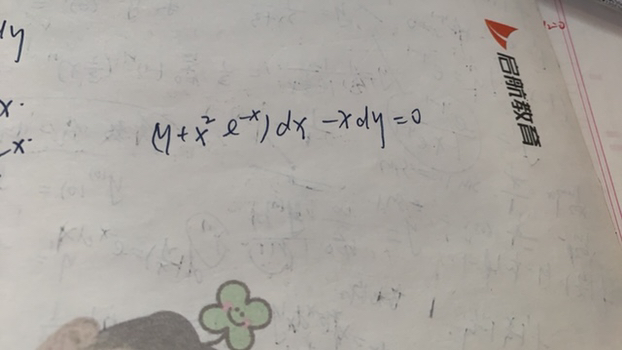 dy
x.
-x.
(y+x² e⁻ˣ) dx -x dy =0
启航教育